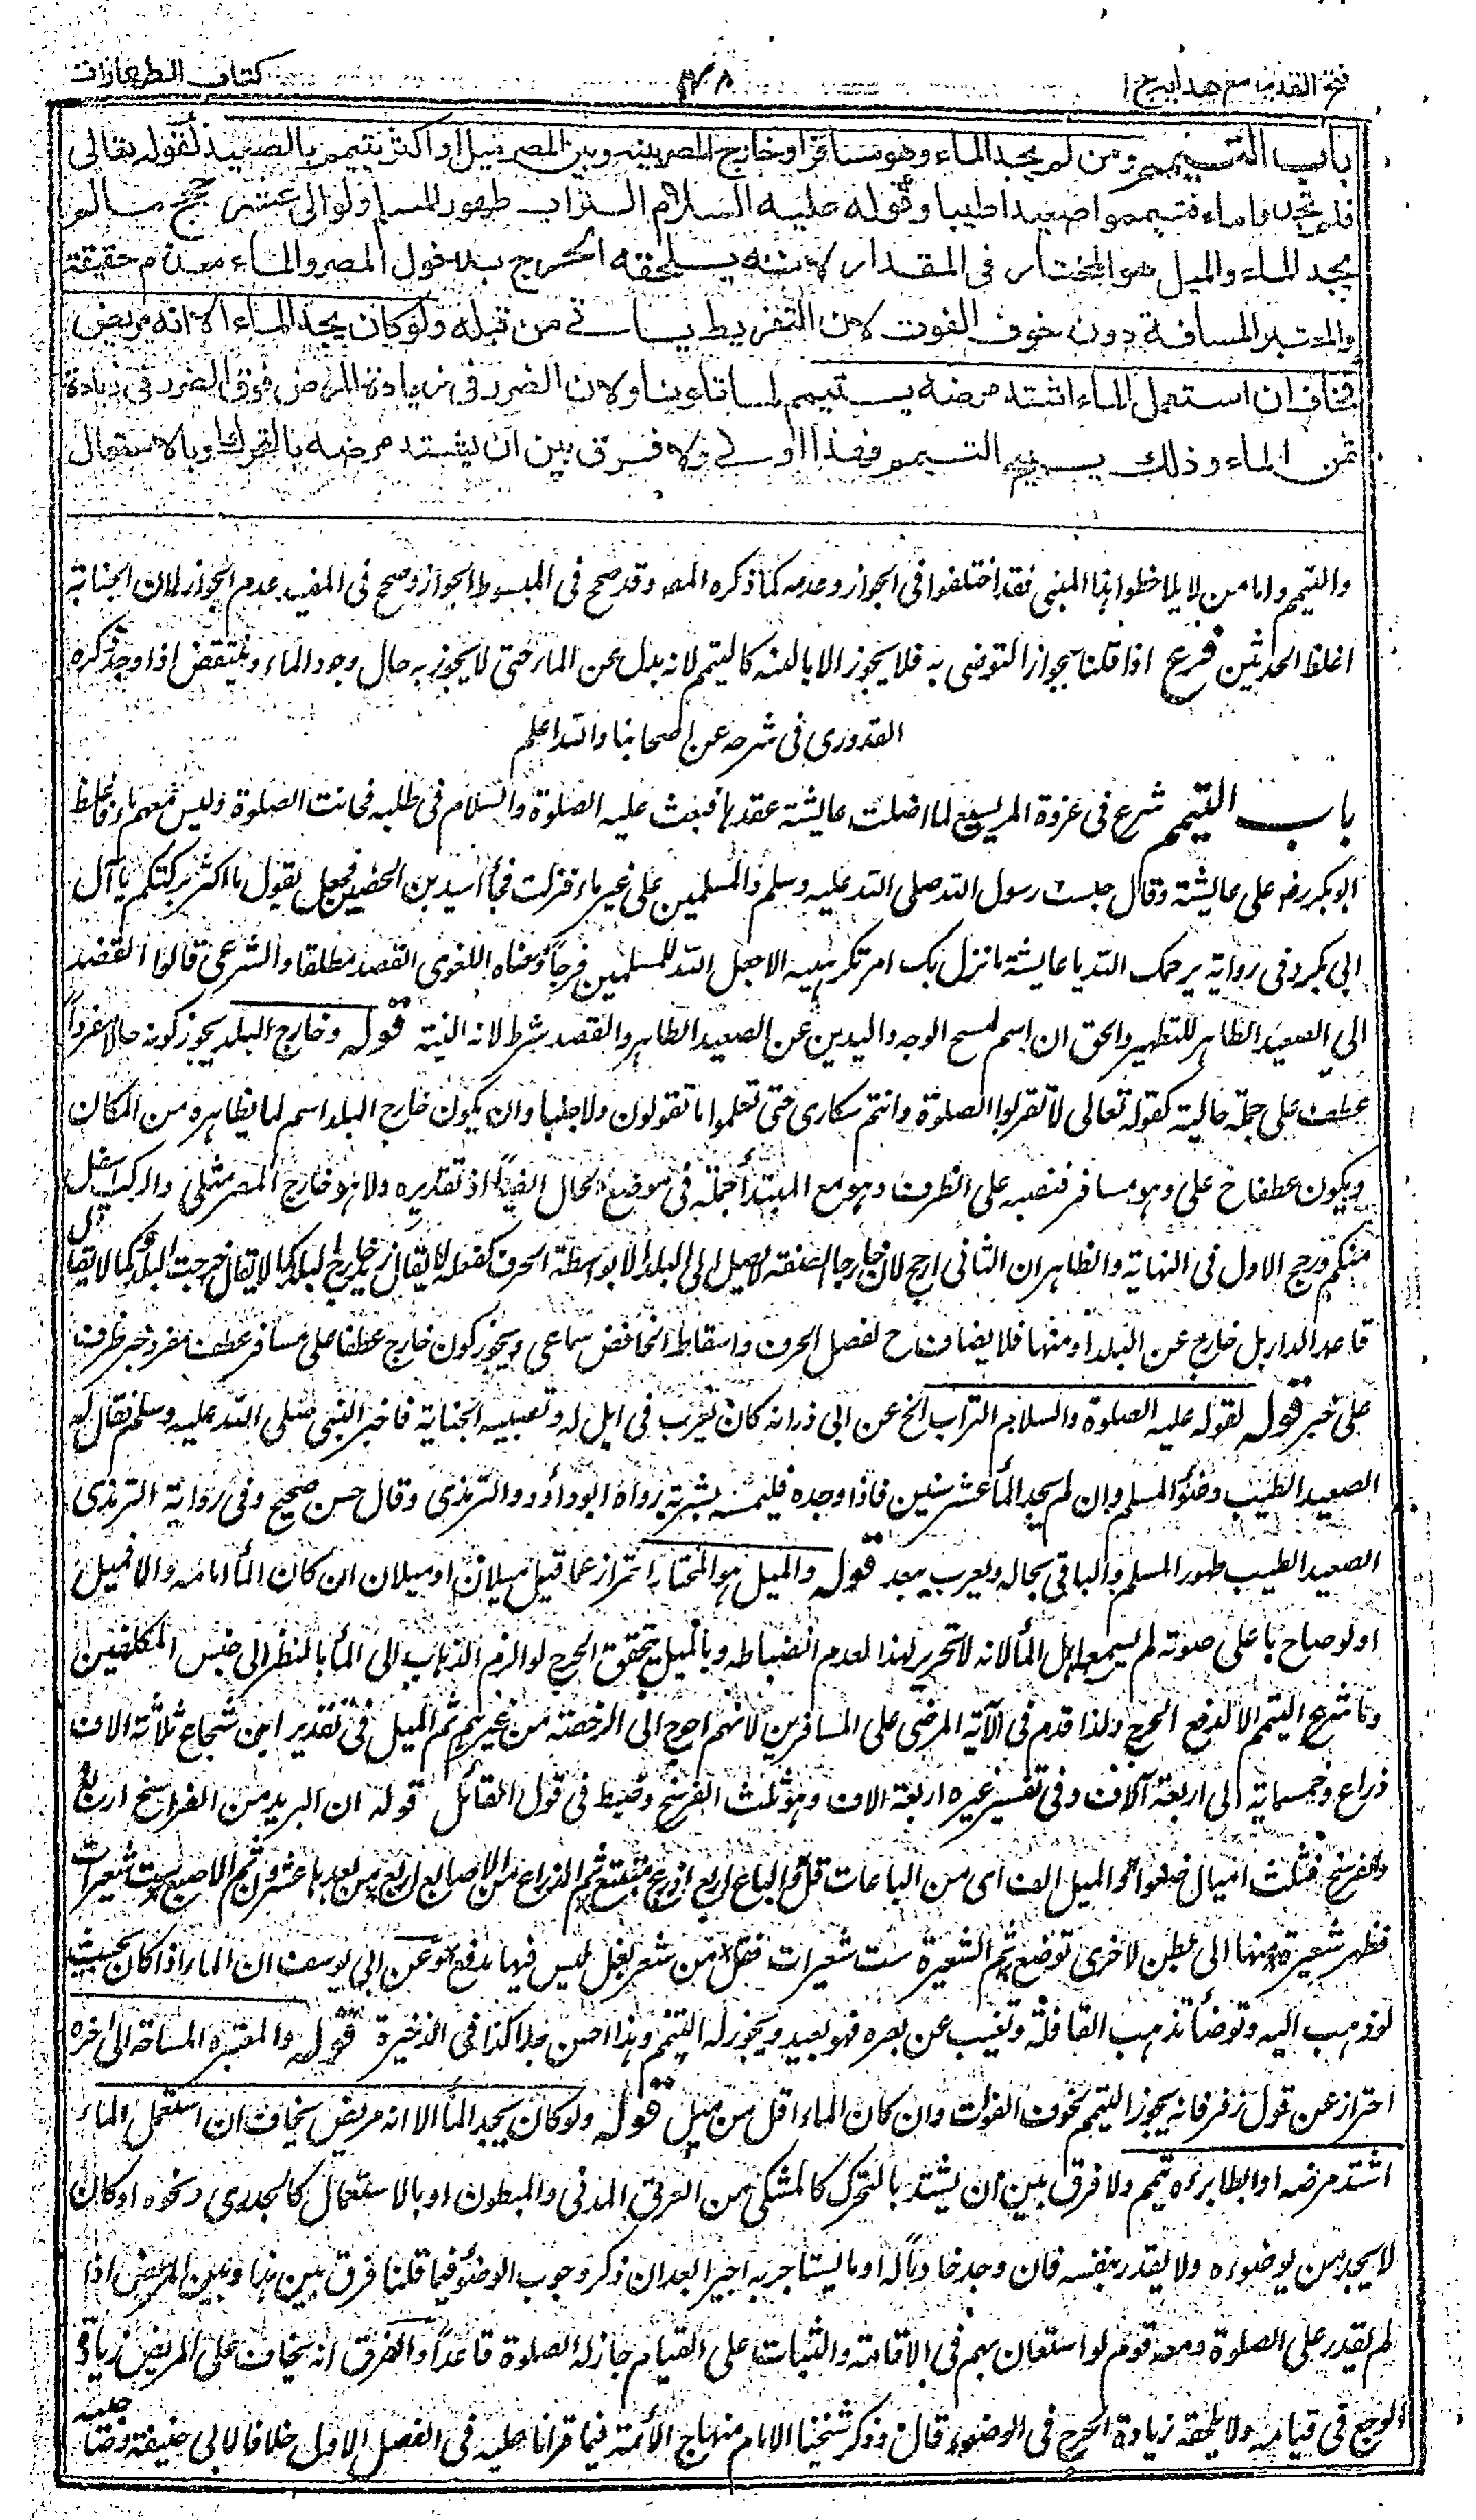 فتح القدير مع هدايه ج ١
١٠٨
كتاب الطهارات
باب التيمم ومن لم يجد الماء وهو مسافر او خارج المصر بينه وبين المصر ميل او اكثر يتيمم بالصعيد لقوله تعالى
فلم تجدوا ماء فتيمموا صعيدا طيبا وقوله عليه السلام التراب طهور المسلم ولو الى عشر حجج ما لم
يجد الماء والميل هو المختار في المقدار لانه يلحقه الحرج بدخول المصر والماء معدوم حقيقة
والمعتبر المسافة دون خوف الفوت لان التفريط ياتي من قبله ولو كان يجد الماء الا انه مريض
فخاف ان استعمل الماء اشتد مرضه يتيمم لما تلونا ولان الضرر في زيادة المرض فوق الضرر في زيادة
ثمن الماء وذلك يبيح التيمم فهذا اولى ولا فرق بين ان يشتد مرضه بالتحرك او بالاستعمال
والتيمم واما من لا يلاحظوا هذا المبنى فقد اختلفوا في الجواز وعدمه كما ذكره المصـ وقد صحح في المبسوط الجواز وصحح في المفيد عدم الجواز لان الجنابة
اغلظ الحدثين فرع اذا قلنا بجواز التوضى به فلا يجوز الا بالنية كالتيمم لانه بدل عن الماء حتى لا يجوز به حال وجود الماء وينتقض اذا وجد ذكره
القدورى فى شرحه عن اصحابنا والله اعلم
باب التيمم شرع فى غزوة المريسيع لما اضلت عايشة عقدها فبعث عليه الصلوة والسلام فى طلبه فحانت الصلوة وليس معهم ماء فاغلظ
ابو بكر رضـ على عايشة وقال حبست رسول الله صلى الله عليه وسلم والمسلمين على غير ماء فنزلت فجاء اسيد بن الحضير فجعل يقول ما اكثر بركتكم يا آل
ابى بكر وفى رواية يرحمك الله يا عايشة ما نزل بك امر تكرهينه الا جعل الله للمسلمين فرجاً ومعناه اللغوى القصد مطلقا والشرعى قالوا القصد
الى الصعيد الطاهر للتطهير والحق ان اسم لمسح الوجه واليدين عن الصعيد الطاهر والقصد شرط لانه النية قوله وخارج البلد يجوز كونه حالا مفرداً
عطف على جملة حالية كقوله تعالى لا تقربوا الصلوة وانتم سكارى حتى تعلموا ما تقولون ولا جنبا وان يكون خارج البلد اسم لما يظاهره من المكان
ويكون عطفا ح على وهو مسافر فنصبه على الظرف وهو مع المبتدأ جملة فى موضع الحال ايضاً اذ تقديره ولا هو خارج المصر مثل والركب اسفل
منكم ورجح الاول فى النهاية والظاهر ان الثانى ارجح لان خارجا الصفة لا يصل الى البلد الا بواسطة الحرف كفعله لا يقال زيد خارج البلد كما لا يقال خرجت البلد وكما لا يقال
قاعد الدار بل خارج عن البلد او منها فلا يضاف ح لفصل الحرف واسقاط الخافض سماعى ويجوز كون خارج عطفا على مسافر عطف مفرد خبر ظرف
على خبر قوله لقوله عليه الصلوة والسلام التراب الخ عن ابى ذر انه كان يعزب فى ابل له وتصيبه الجنابة فاخبر النبى صلى الله عليه وسلم فقال له
الصعيد الطيب وضوء المسلم وان لم يجد الماء عشر سنين فاذا وجده فليمسه بشرته رواه ابو داؤد والترمذى وقال حسن صحيح وفى رواية الترمذى
الصعيد الطيب طهور المسلم والباقى بحاله ويعزب يبعد قوله والميل هو المختار احتراز عما قيل ميلان او ميلان ان كان الماء امامه والا فميل
او لو صاح باعلى صوته لم يسمعه اهل الماء لانه لا تحرير لهذا لعدم انضباطه وبالميل يتحقق الحرج لو الزم الذهاب الى الماء بالنظر الى جنس المكلفين
وما شرع التيمم الا لدفع الحرج ولذا قدم فى الآية المرضى على المسافرين لانهم احوج الى الرخصة من غيرهم ثم الميل فى تقدير ابن شجاع ثلاثة الاف
ذراع وخمسماية الى اربعة آلاف وفى تفسير غيره اربعة الاف وهو ثلث الفرسخ وضبط فى قول القائل قوله ان البريد من الفراسخ اربع
والفرسخ فثلث اميال ضعوا والميل الف اى من الباعات قل والباع اربع اذرع فتتبع ثم الذراع من الاصابع اربع من بعدها عشرون ثم الاصبع ست شعيرات
فظهر شعيرة منها الى بطن لاخرى توضع ثم الشعيرة ست شعيرات فقل من شعر بغل ليس فيها مدفع وعن ابى يوسف ان الماء اذا كان بحيث
لو ذهب اليه وتوضأ تذهب القافلة وتغيب عن بصره فهو بعيد ويجوز له التيمم وهذا حسن جدا كذا فى الذخيرة قوله والمعتبر المسافة الى آخره
احتراز عن قول زفر فانه يجوز التيمم لخوف الفوات وان كان الماء اقل من ميل قوله ولو كان يجد الماء الا انه مريض يخاف ان استعمل الماء
اشتد مرضه او ابطا برؤه تيمم ولا فرق بين ان يشتد بالتحرك كالمشتكى من العرق المدنى والمبطون او بالاستعمال كالجدرى ونحوه او كان
لا يجد من يوضوءه ولا يقدر بنفسه فان وجد خادما له او ما يستاجر به اجيرا بعد ان ذكر وجوب الوضوء فيما قلنا فرق بين هذا وبين المريض اذا
لم يقدر على الصلوة ومعه قوم لو استعان بهم فى الاقامة والثبات على القيام جاز له الصلوة قاعداً والفرق انه يخاف على المريض زيادة
الوجع فى قيامه ولا يلحقه زيادة الحرج فى الوضوء قال وذكر شيخنا الامام منهاج الأئمة فيما قرانا عليه فى الفصل الاول خلافا لابى حنيفة وصاحبيه